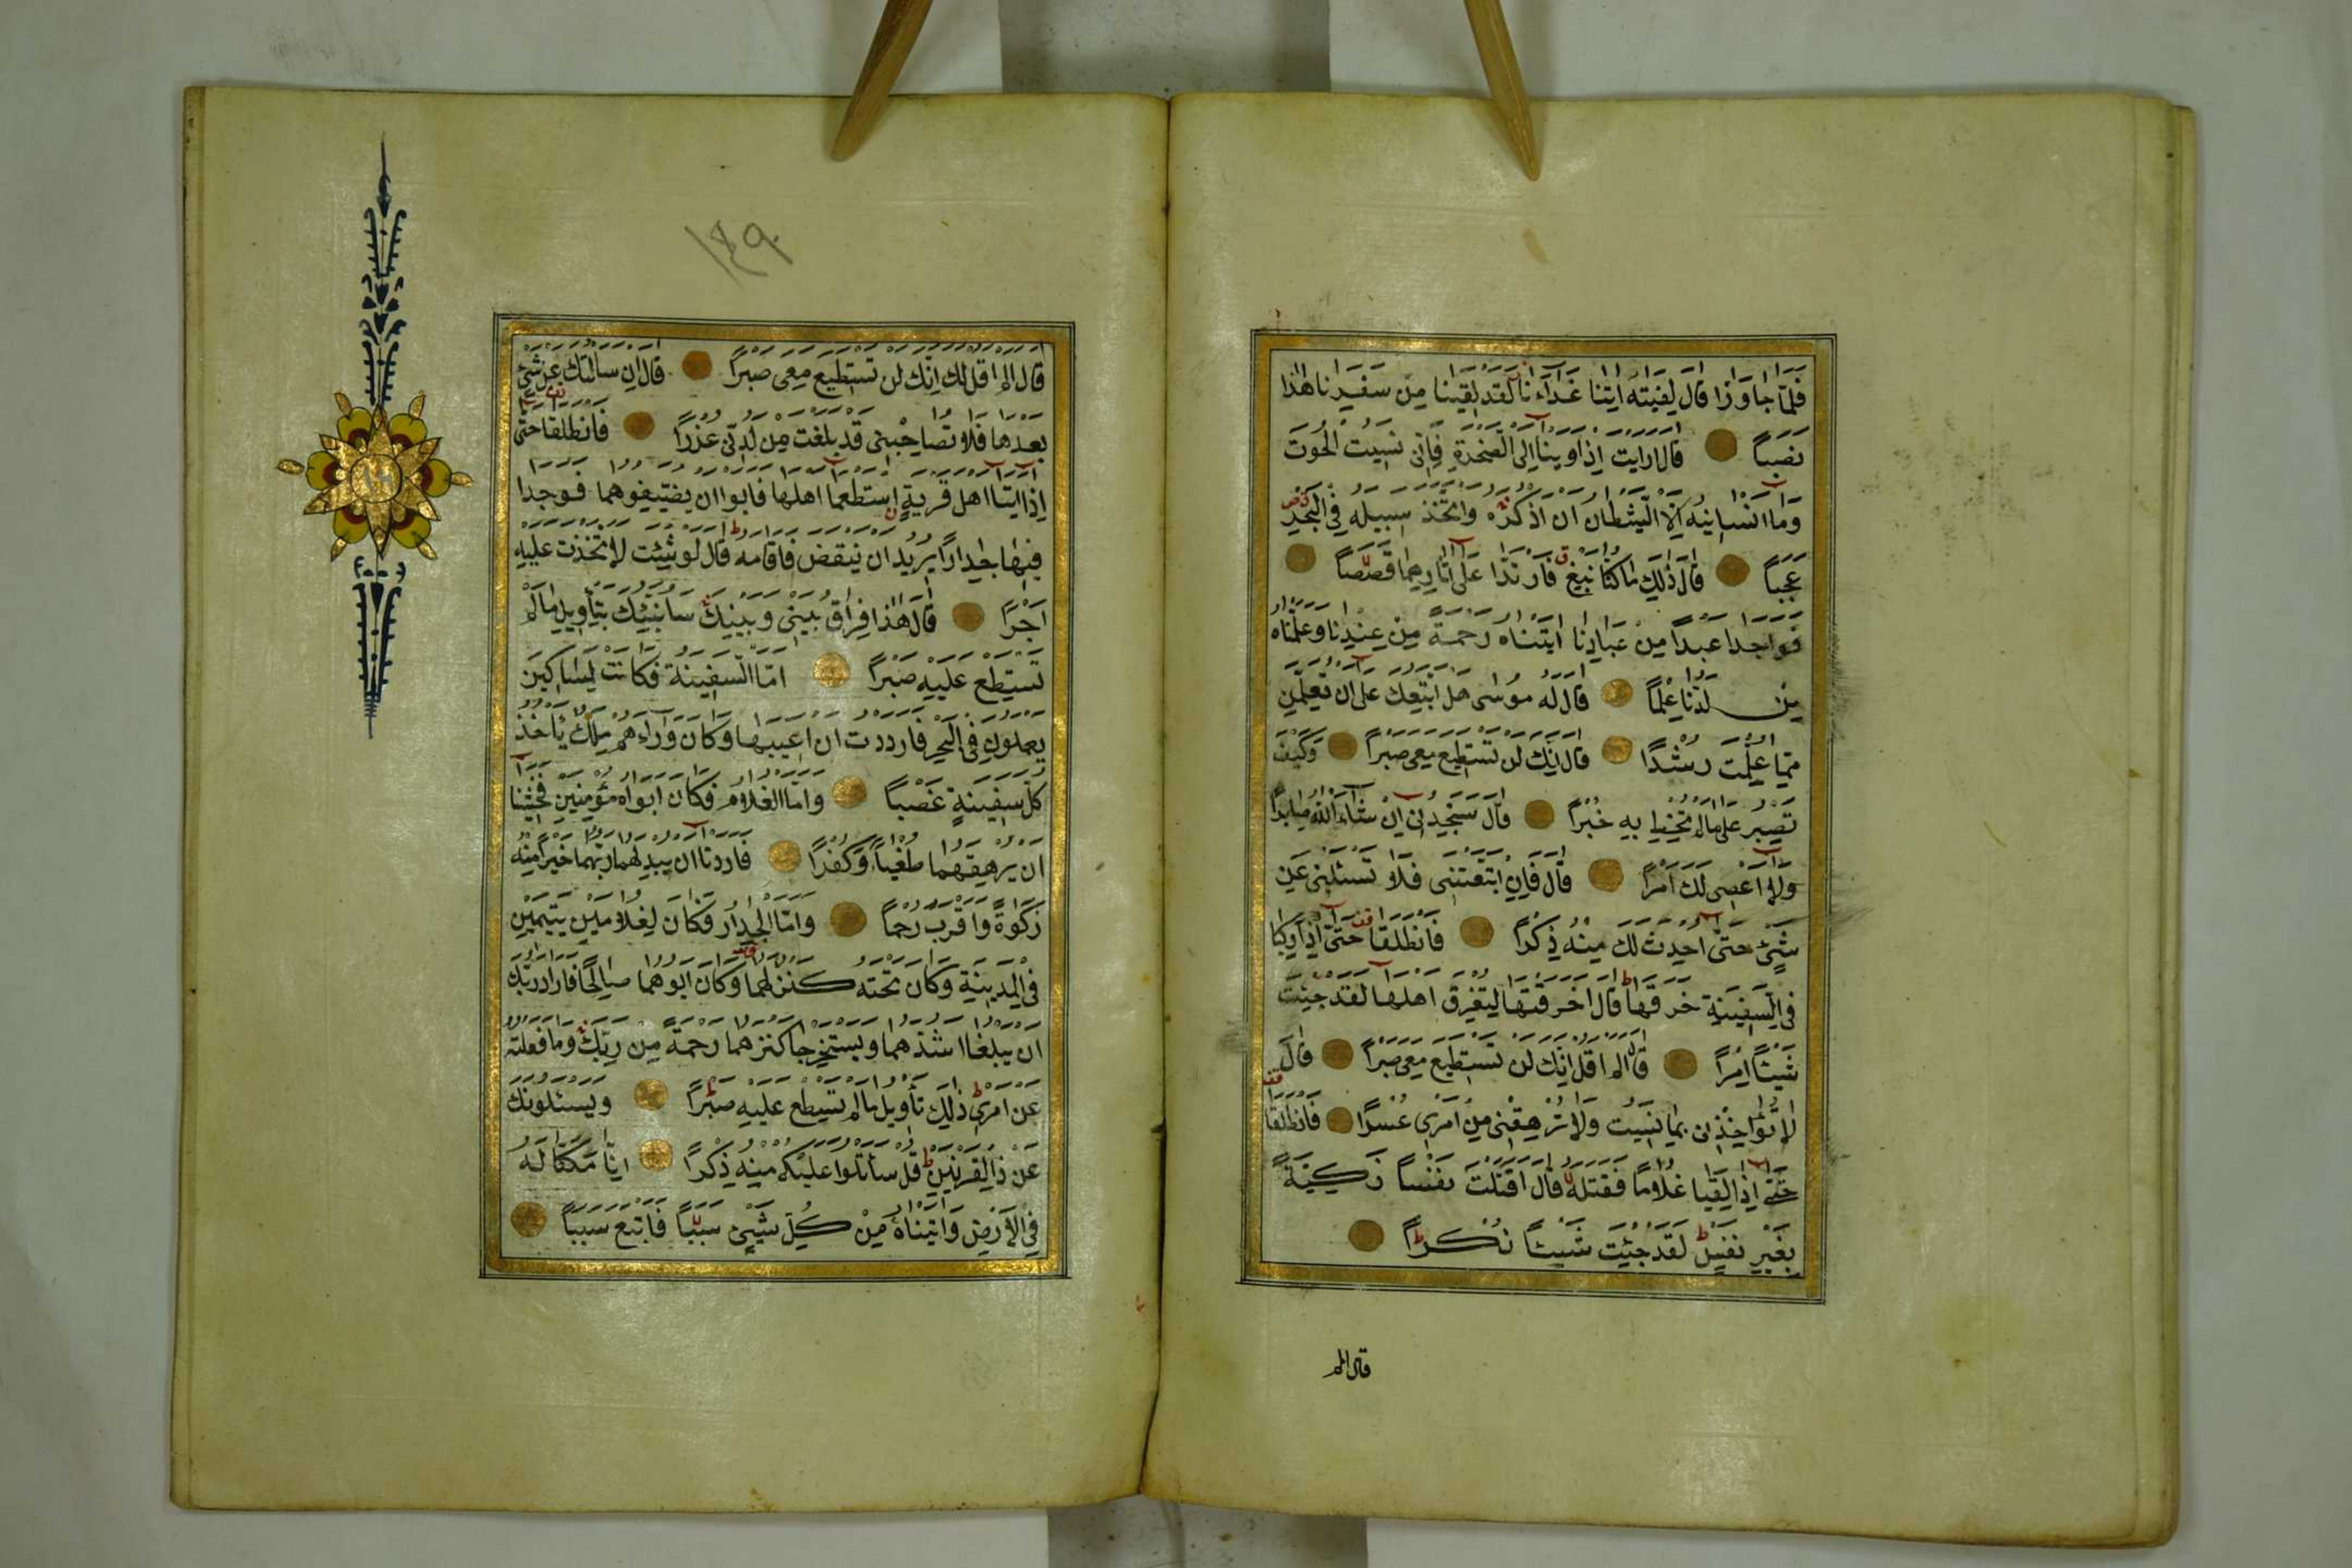 فلما جاوزا قال لفتيه اتنا غداءنا لقد لقينا من سفرنا هذا
نصبا قال ارايت اذ اوينا الى الصخرة فانى نسيت الحوت
وما انسانيه الا الشيطان ان اذكره واتخذ سبيله فى البحر
عجبا قال ذلك ما كنا نبغ فارتدا على اثارهما قصصا
فواجدا عبدا من عبادنا اتيناه رحمة من عندنا وعلمناه
من لدنا علما قال له موسى هل اتبعك على ان تعلمن
مما علمت رشدا قال انك لن تستطيع معى صبرا وكيف
تصبر على ما لم تحط به خبرا قال ستجدنى ان شاء الله صابرا
ولا اعصى لك امرا قال فان اتبعتنى فلا تسئلنى عن
شئ حتى احدث لك منه ذكرا فانطلقا حتى اذا ركبا
فى السفينة خرقها قال اخرقتها لتغرق اهلها لقد جئت
شيئا امرا قال الم اقل انك لن تستطيع معى صبرا قال
لا تؤاخذنى بما نسيت ولا ترهقنى من امرى عسرا فانطلقا
حتى اذا لقيا غلاما فقتله قال اقتلت نفسا زكية
بغير نفس لقد جئت شيئا نكرا
قال الم
١٤٩
قال الم اقل لك انك لن تستطيع معى صبرا قال ان سالتك عن شئ
بعدها فلا تصاحبنى قد بلغت من لدنى عذرا فانطلقا حتى
اذا اتيا اهل قرية استطعما اهلها فابوا ان يضيفوهما فوجدا
فيها جدارا يريد ان ينقض فاقامه قال لو شئت لاتخذت عليه
اجرا قال هذا فراق بينى وبينك سانبئك بتأويل ما لم
تستطع عليه صبرا اما السفينة فكانت لمساكين
يعملون فى البحر فاردت ان اعيبها وكان وراءهم ملك يأخذ
كل سفينة غصبا واما الغلام فكان ابواه مؤمنين فخشينا
ان يرهقهما طغيا وكفرا فاردنا ان يبدلهما ربهما خيرا منه
زكوة واقرب رحما واما الجدار فكان لغلامين يتيمين
فى المدينة وكان تحته كنز لهما وكان ابوهما صالحا فاراد ربك
ان يبلغا اشدهما ويستخرجا كنزهما رحمة من ربك وما فعلته
عن امرى ذلك تأويل ما لم تسطع عليه صبرا ويسئلونك
عن ذى القرنين قل سأتلوا عليكم منه ذكرا انا مكنا له
فى الارض واتيناه من كل شئ سببا فاتبع سببا